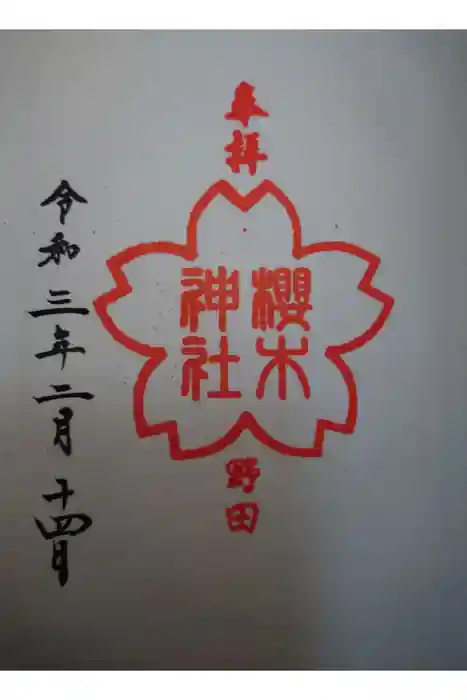 奉拝
櫻木
神社
野田
令和三年二月十四日